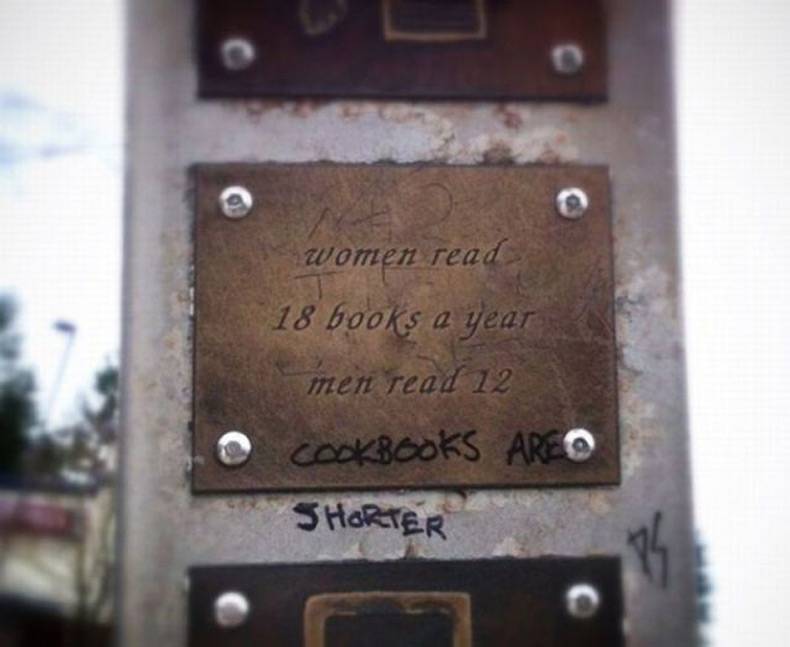 women read
18 books a year
men read 12
COOKBOOKS ARE
SHORTER